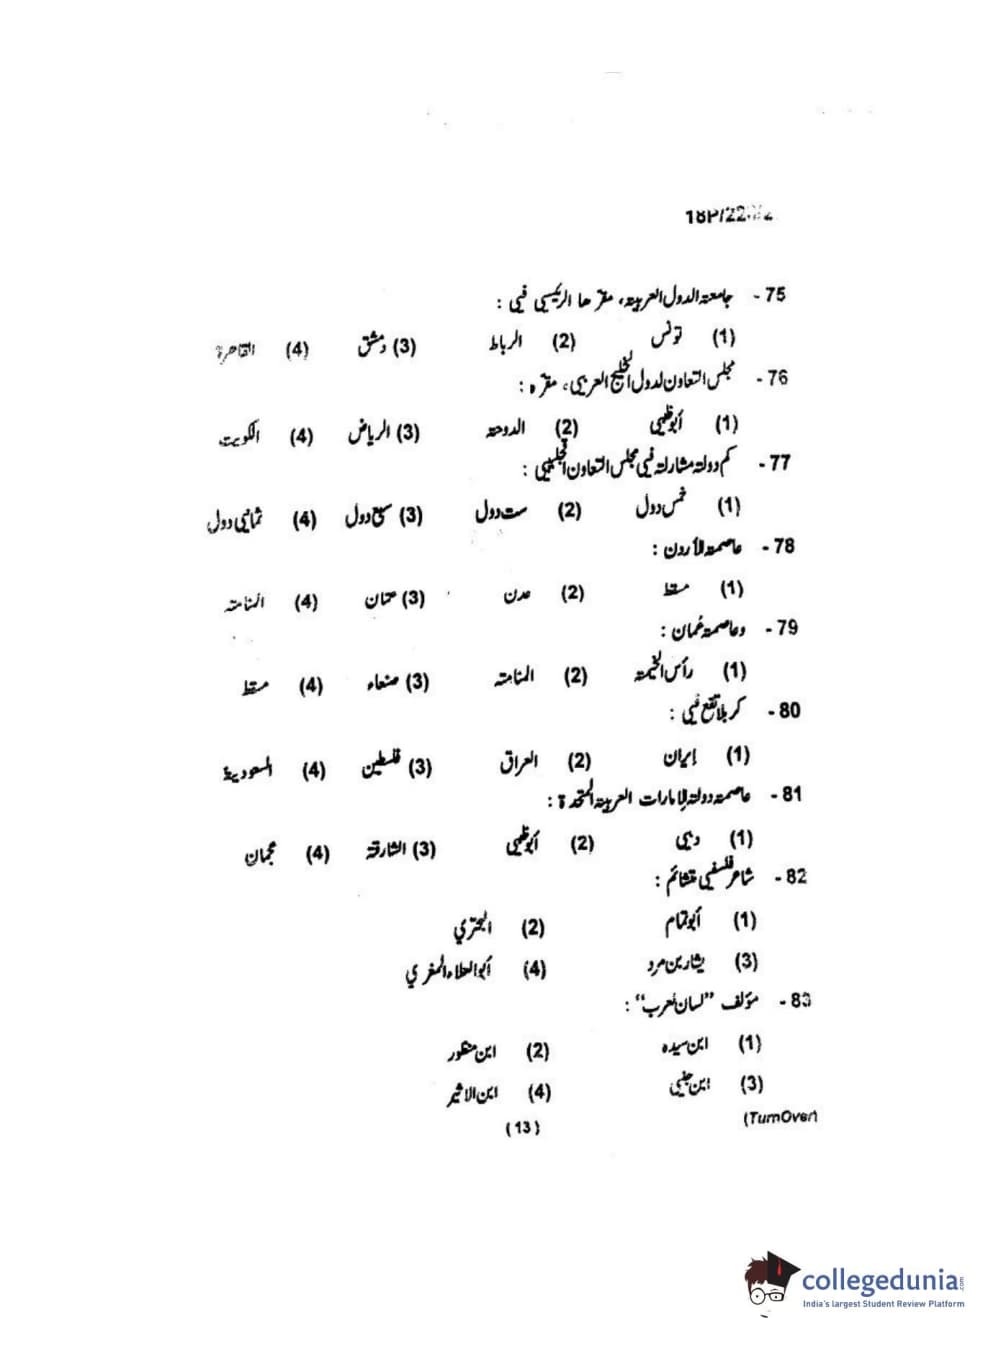 75 - جامعة الدول العربية، مقرها الرئيسي في :
(1) تونس (2) الرباط (3) دمشق (4) القاهرة
76 - مجلس التعاون لدول الخليج العربي، مقره :
(1) أبوظبي (2) الدوحة (3) الرياض (4) الكويت
77 - كم دولة مشاركة في مجلس التعاون الخليجي :
(1) خمس دول (2) ست دول (3) سبع دول (4) ثماني دول
78 - عاصمة الأردن :
(1) مسقط (2) عدن (3) عمان (4) المنامة
79 - وعاصمة عُمان :
(1) رأس الخيمة (2) المنامة (3) صنعاء (4) مسقط
80 - كربلا تقع في :
(1) إيران (2) العراق (3) فلسطين (4) السعودية
81 - عاصمة دولة الإمارات العربية المتحدة :
(1) دبي (2) أبوظبي (3) الشارقة (4) عجمان
82 - شاعر فلسفي متشائم :
(1) أبوتمام (2) البحتري
(3) بشار بن برد (4) أبو العلاء المعري
83 - مؤلف "لسان العرب" :
(1) ابن سيده (2) ابن منظور
(3) ابن جني (4) ابن الاثير
(13) (TurnOver)
collegedunia.com
India's largest Student Review Platform